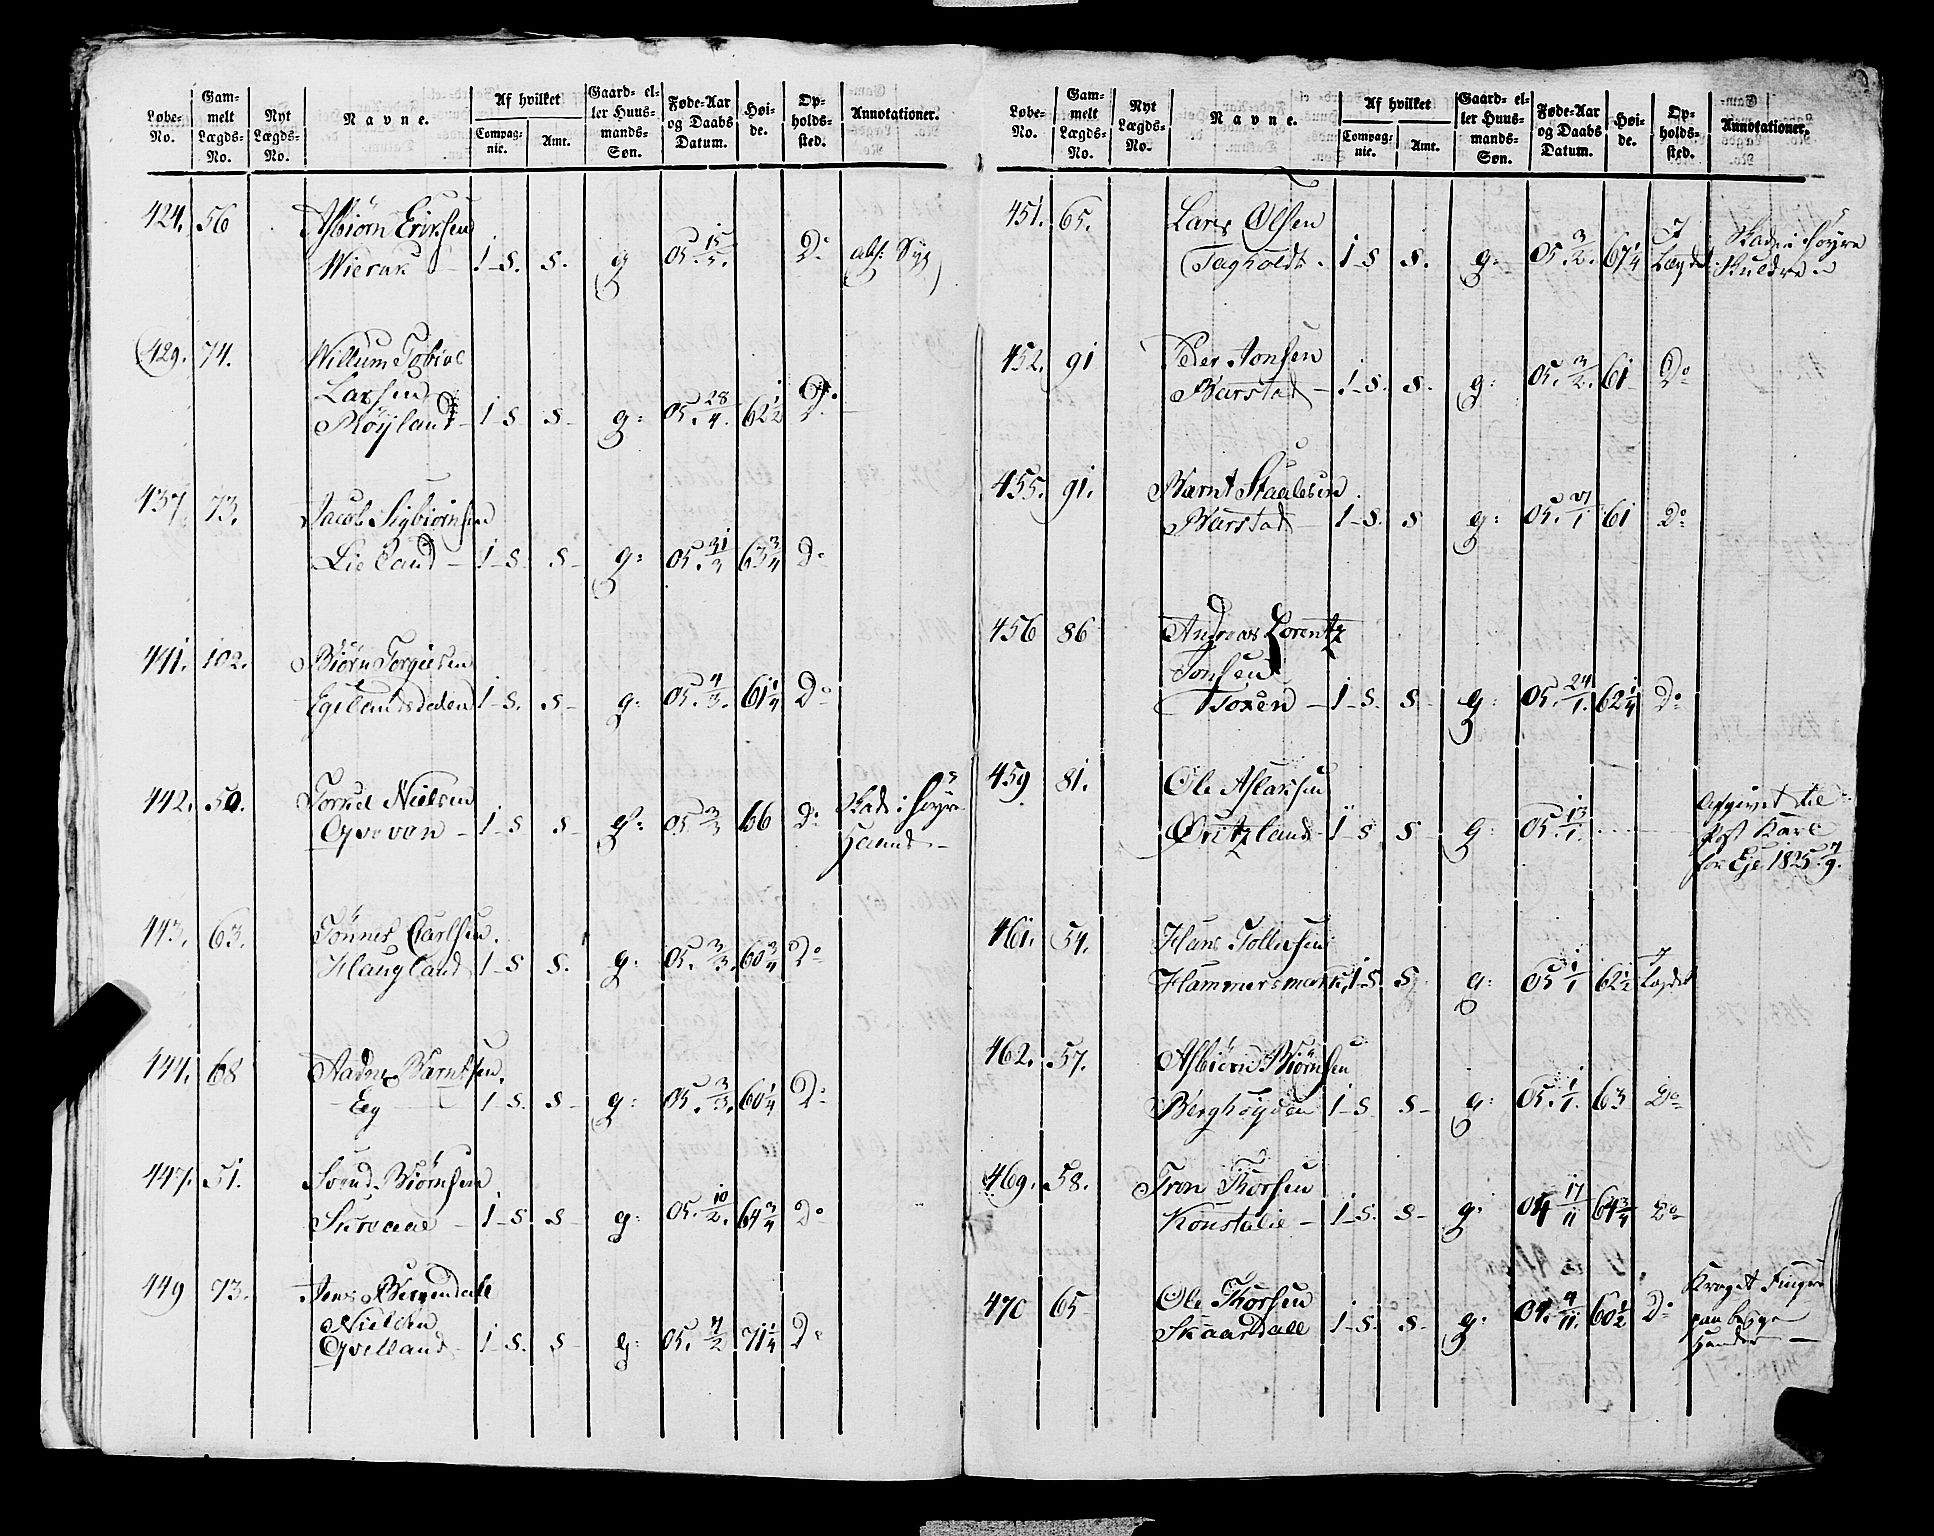 Løbe-No. Gam-melt Lægds-No. Nyt Lægds-No. Navne. Af hvilket Compag-nie. Amt. Gaard- el-ler Huus-mands-Søn. Føde-Aar og Daabs Datum. Høi-de. Op-holds-sted. Annotationer.
424. 56 Asbiørn Erichsen
1 - S. S. g 05. D.º abs: Syg
429. 74. Willum Tobias
Larsen
Røÿland 1 - S S - g: 05. 28/4. 62 1/2 D.º
437 73. Jacob Sigbiørnsen
Lieland - 1 - S. S - g: 05. 31/3 63 3/4 D.º
441. 102. Biørn Torgiersen
Egelandsdalen 1 - S. S - g: 05. 4/3. 61 1/4 D.º
442. 50. Torkel Nielsen Skade i høyre
1 - S S - 05. 3/3 66 D.º Haand -
443. 63. Tönnes Carlsen.
Haugland 1 - S S. g: 05. 3/3. 60 3/4 D.º
444. 68 Aaden Barntsen.
Eeg 1 - S. S - g: 05. 3/3. 60 1/4 D.º
447. 51. Svend Biørnsen
1 - S. S - g: 05. 10/2. 64 3/4 D.º
449 73. Jens
Nielsen
Qvelland - 1 - S. S g: 05. 71 1/4 D.º
Løbe-No. Gam-melt Lægds-No. Nyt Lægds-No. Navne. Af hvilket Compag-nie. Amt. Gaard- el-ler Huus-mands-Søn. Føde-Aar og Daabs Datum. Høi-de. Op-holds-sted. Annotationer.
451. 65. Lars Olsen I Skade i høyre
Tagholdt. 1 - S S. g: 05. 3/2. 67 1/4 Lægdet Skuldre
452. 91 Peder Aonsen
Barstad - 1 - S. S. g: 05. 3/2. 61 D.º
455. 91. Barnt Staalesen
Barstad - 1 - S. S g: 05. 61 D.º
456 86 Andreas Lorentz
Jonsen
- 1 - S. S - g: 05. 24/1. 62 1/4 D.º
459 81. Ole Aslaksen Afgivet til
Øritzland - 1 - S S g: 05. 13/1. Post Karl
for Eje 1825
461. 54. Hans Tollefsen I
Hammersmark, 1 - S. S g: 05 1/1 62 1/2 Lægdet
462. 57. Asbiørn Biørnsen
Berghöyden 1 - S. S - g: 05. 1/1. 63 D.º
469. 58. Tron Thorsen
Konstalie - 1 - S. S - g: 04 17/11 64 3/4 D.º
470 65 Ole Thorsen Kroget Finger
Skaardall 1 - S. S - g: 04. 4/11. 60 1/2 D.º paa begge
Hænder -